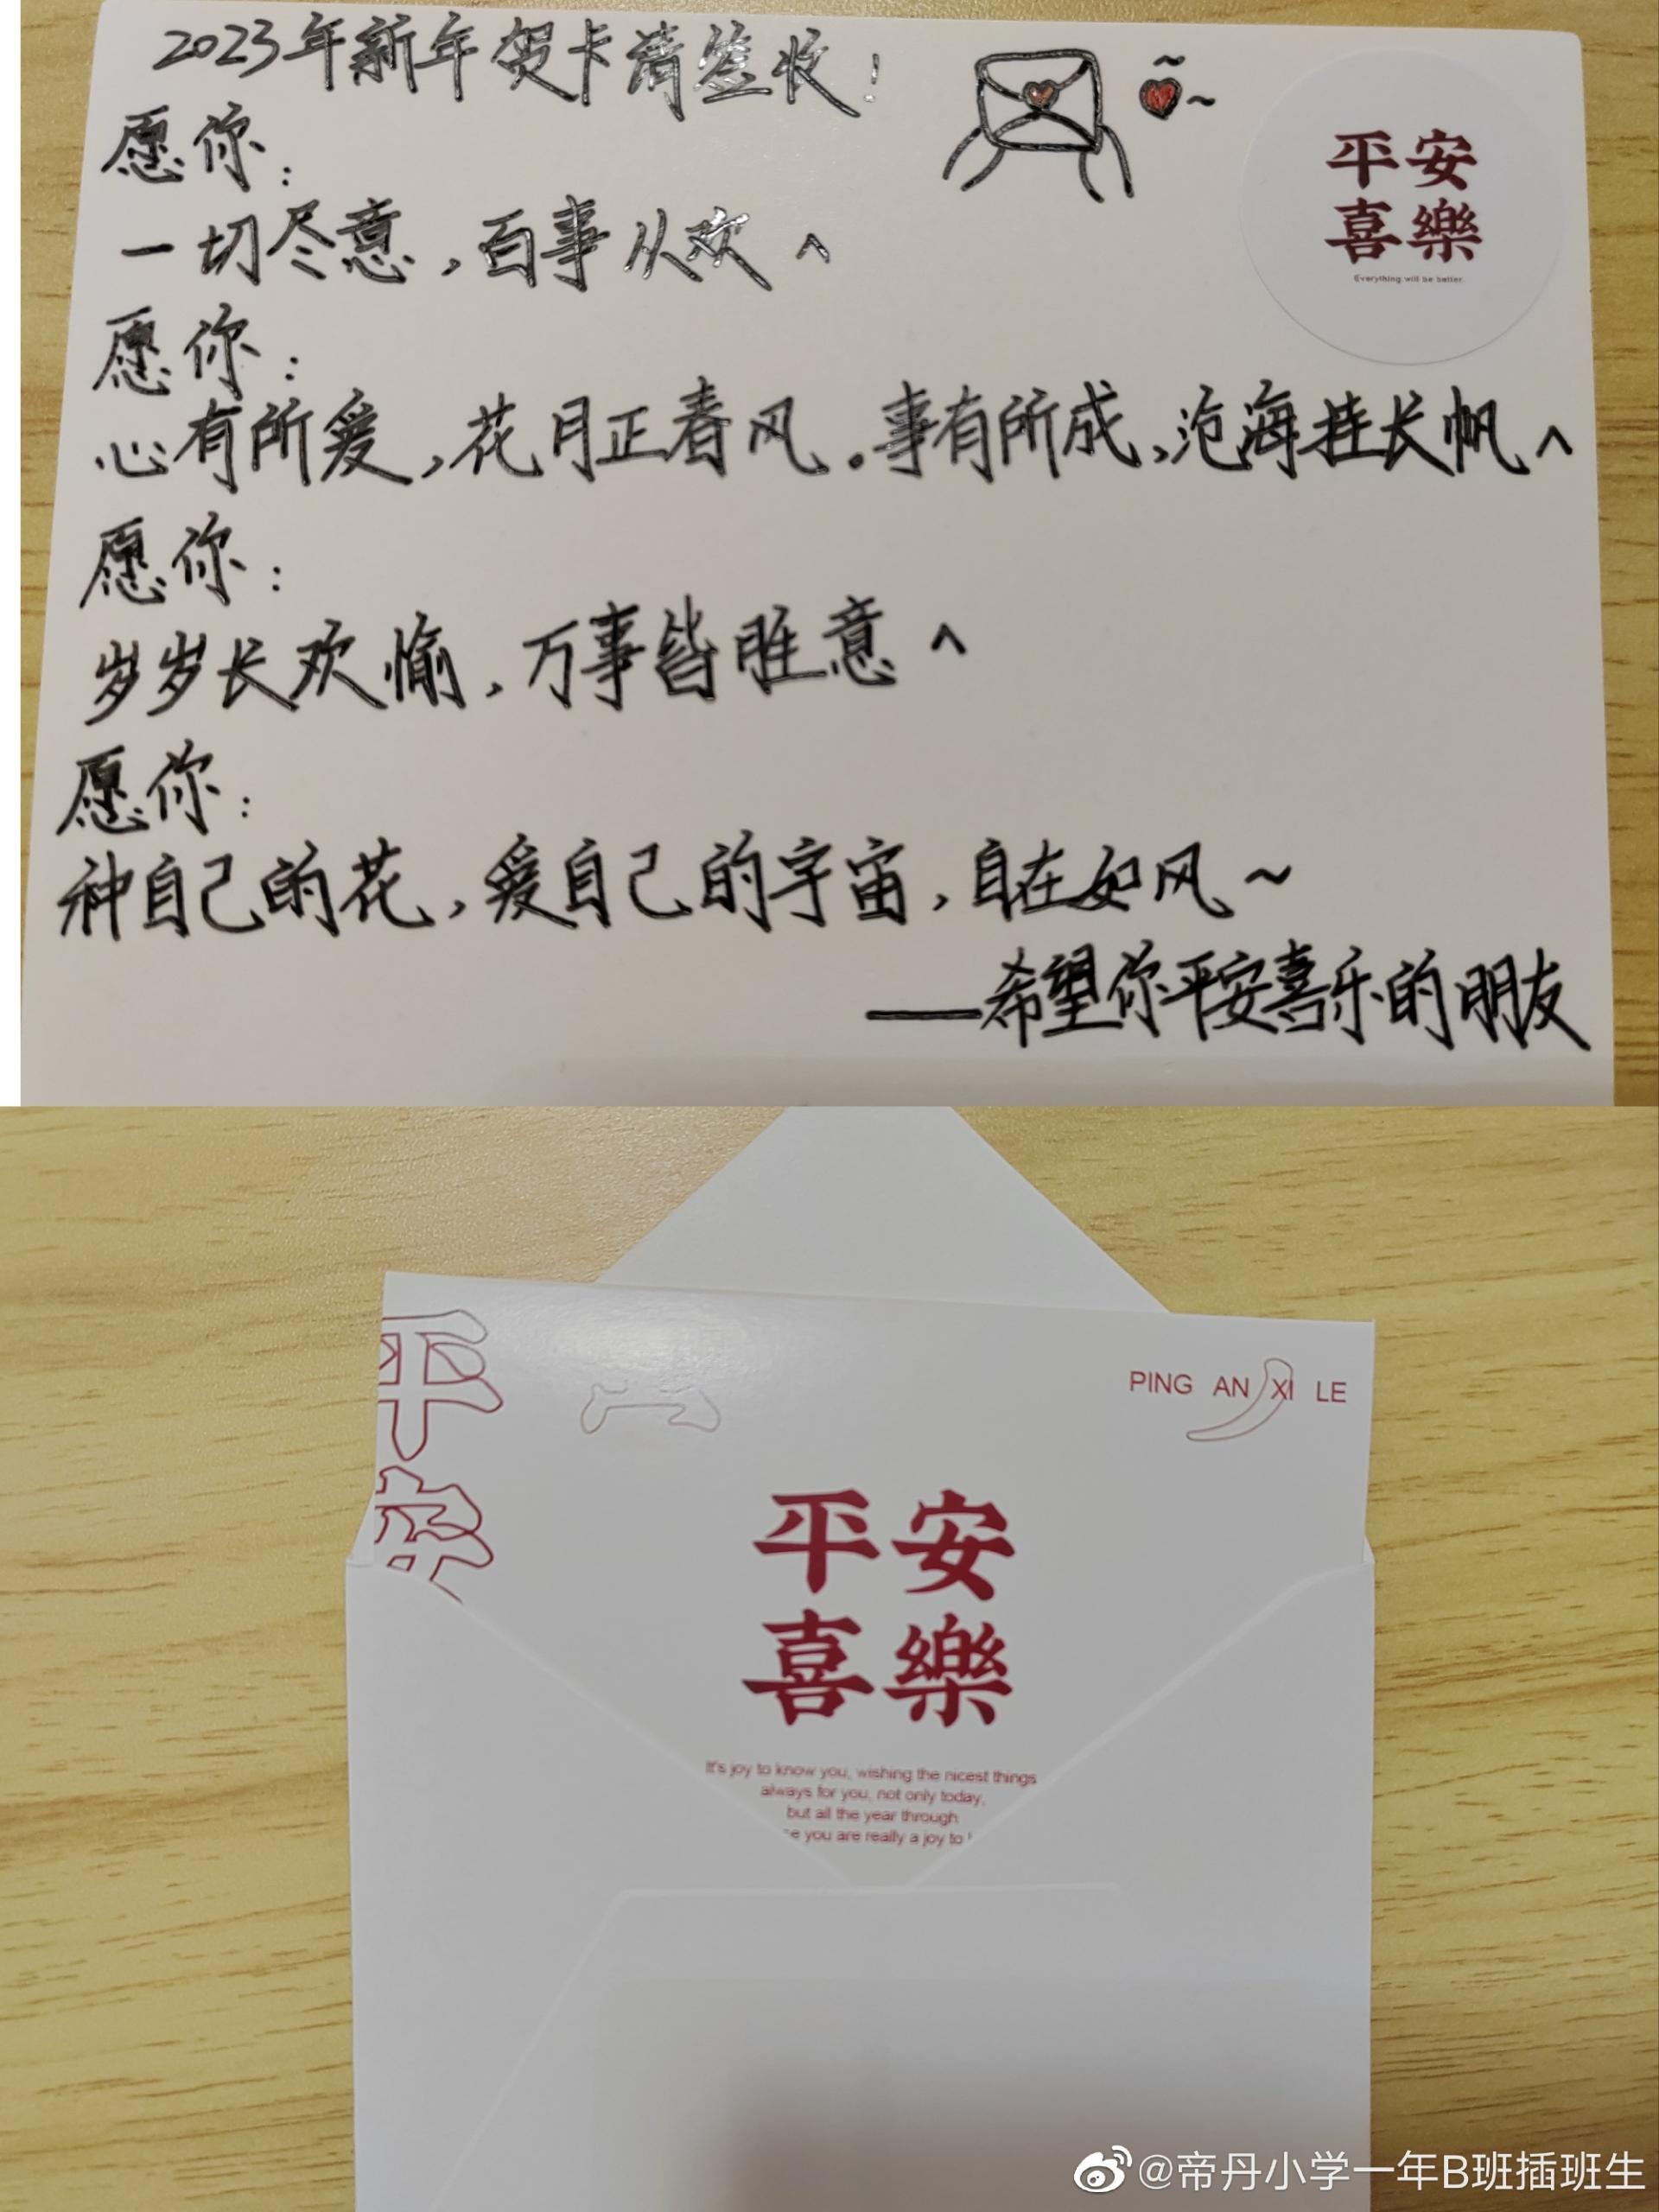 2023年新年贺卡请签收!
愿你:
一切尽意,百事从欢^
愿你:
心有所爱,花月正春风。事有所成,沧海挂长帆^
愿你:
岁岁长欢愉,万事皆胜意^
愿你:
种自己的花,爱自己的宇宙,自在如风~
——希望你平安喜乐的朋友
平安
喜樂
Everything will be better.
平
安
PING AN XI LE
平安
喜樂
It's joy to know you, wishing the nicest things
always for you, not only today,
but all the year through
you are really a joy to
@帝丹小学一年B班插班生